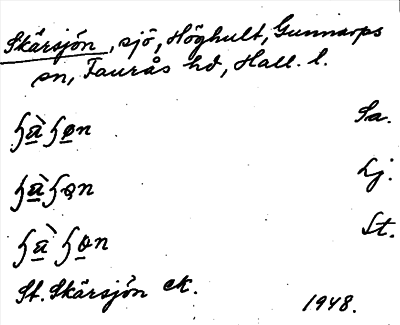 Skärsjön, sjö, Höghult, Gunnarps
sn, Faurås hd, Hall. l.
ʃɑ̀ʃøn Sa.
ʃɑ̀ʃɷn Lj.
ʃɑ̀ʃɷn St.
St. Skärsjön ek.
1948.